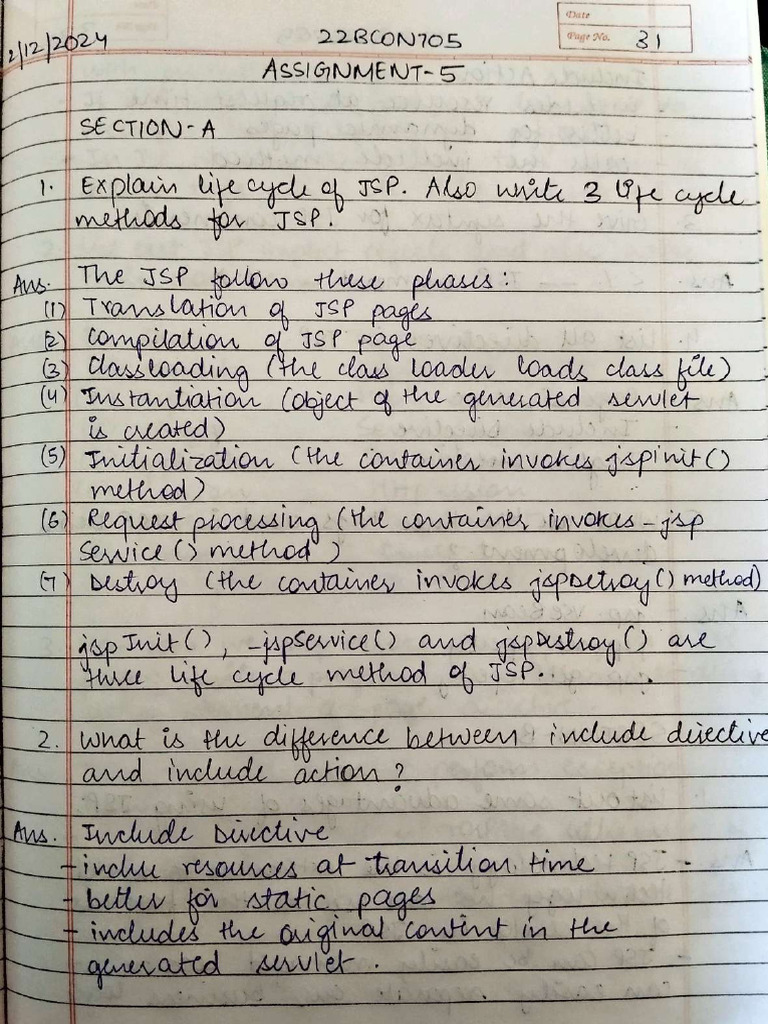 Date
2/12/2024 22BCON705 Page No. 31
ASSIGNMENT-5
SECTION-A
1. Explain life cycle of JSP. Also write 3 life cycle
methods for JSP.
Ans. The JSP follow these phases:
(1) Translation of JSP pages
(2) Compilation of JSP page
(3) Classloading (the class loader loads class file)
(4) Instantiation (object of the generated servlet
is created)
(5) Initialization (the container invokes jspinit()
method)
(6) Request processing (the container invokes -jsp
Service() method)
(7) Destroy (the container invokes jspDetroy() method)
jspInit(), -jspService() and jspDestroy() are
three life cycle method of JSP.
2. What is the difference between include directive
and include action?
Ans. Include Directive
- inclue resources at transition time
- better for static pages
- includes the original content in the
generated servlet.